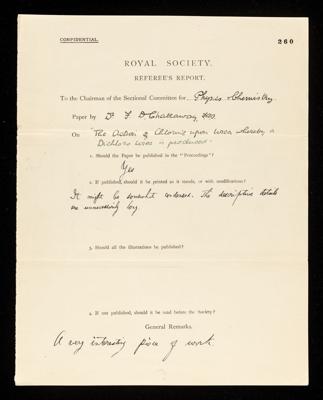 CONFIDENTIAL.
260
ROYAL SOCIETY.
REFEREE'S REPORT.
To the Chairman of the Sectional Committee for Physics & Chemistry.
Paper by Dr F D Chattaway, FRS.
On "The Action of Chlorine upon Urea whereby a
Dichloro Urea is produced"
1. Should the Paper be published in the "Proceedings"?
Yes
2. If published, should it be printed as it stands, or with modifications?
It might be somewhat condensed. The descriptive details
are unnecessarily long.
3. Should all the illustrations be published?
4. If not published, should it be read before the Society?
General Remarks.
A very interesting piece of work.